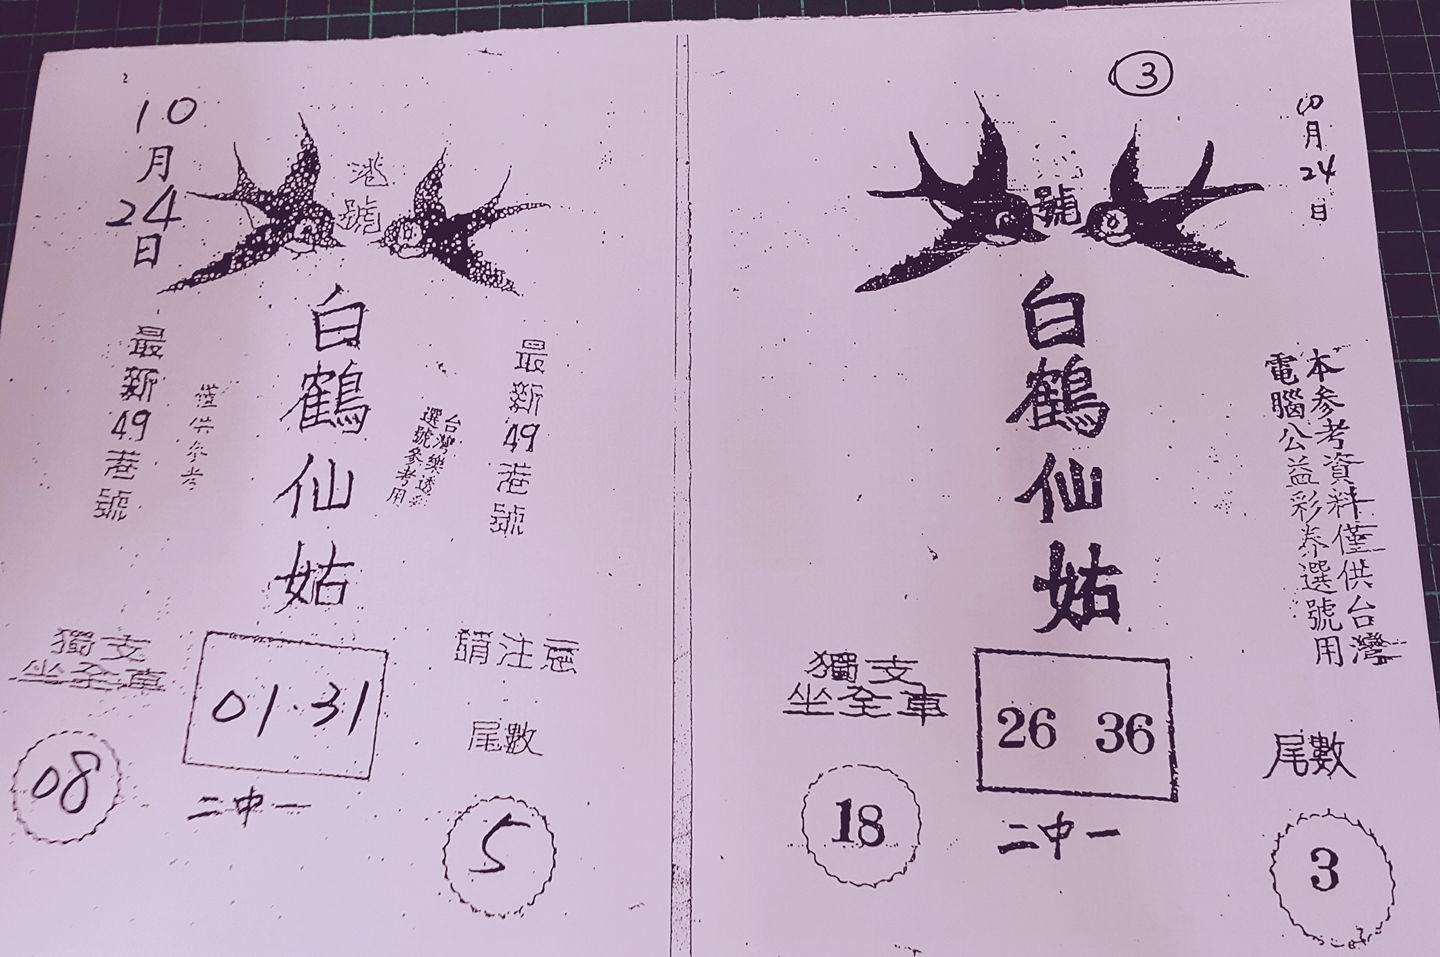 10
月
24
日
港號
白鶴仙姑
最新49港號
僅供參考
台灣樂透彩
選號參考用
最新49港號
獨支
坐全車
08
01.31
二中一
請注意
尾數
5
3
10月24日
號
白鶴仙姑
本參考資料僅供台灣
電腦公益彩券選號用
獨支
坐全車
18
26 36
二中一
尾數
3